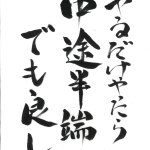 やるだけやったら
中途半端
でも良し